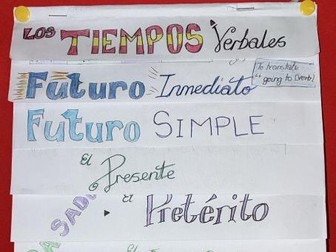 LOS TIEMPOS Verbales
Futuro Inmediato
To translate
"going to [verb]
Futuro SIMPLE
el Presente
el Pretérito